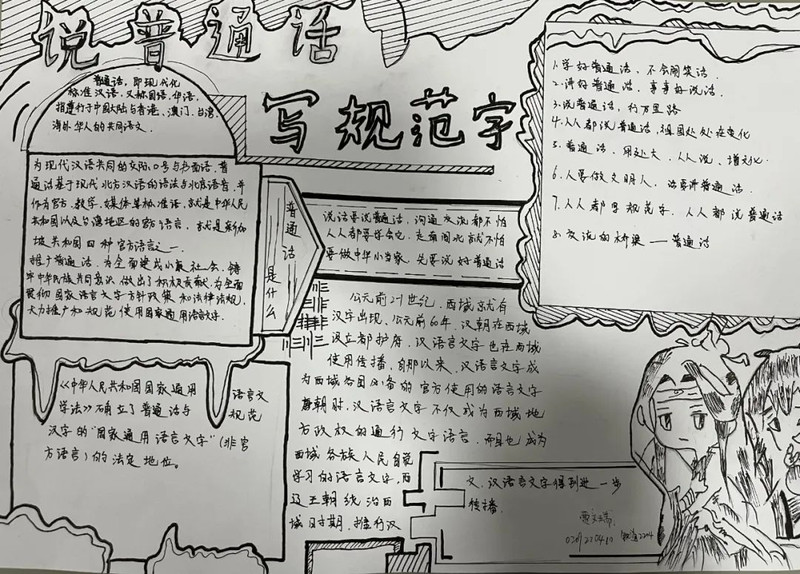 说普通话
写规范字
普通话，即现代化
标准汉语，又称国语、华语，
指通行于中国大陆与香港、澳门、台湾
海外华人的共同语文.
为现代汉语共同的交际口号与书面语，普
通话基于现代北方汉语的语法与北京语音，并
作为官方、教学、媒体等标准语，就是中华人民
共和国以及台湾地区的官方语言，就是新加
坡共和国四种官方语言之一.
推广普通话，为全面建成小康社会，铸
牢中华民族共同意识 做出了积极贡献，为全面
贯彻国家语言文字方针政策和法律法规，
大力推广和规范使用国家通用语言文字.
普通话是什么
说话要说普通话，沟通交流都不怕
人人都要学会它，走南闯北就不怕
要做中华小当家，先要说好普通话
1.学好普通话，不会闹笑话.
2.讲好普通话，事事好说话.
3.说普通话，行万里路
4.人人都说普通话，祖国处处在变化
5.普通话，用处大，人人说，增文化.
6.人要做文明人，话要讲普通话.
7.人人都写规范字，人人都说普通话
8.交流的桥梁——普通话
公元前21世纪，西域就有
汉字出现，公元前60年，汉朝在西域
设立都护府，汉语言文字也在西域
使用传播，自那以来，汉语言文字成
为西域各国必备的官方使用的语言文字
朝时，汉语言文字不仅成为西域地
方政权的通行文字语言，而且也成为
西域各族人民自觉
学习的语言文字，西
辽王朝统治西
域时期，推行汉
文，汉语言文字得到进一步
传播.
《中华人民共和国国家通用
语言文
学法》确立了普通话与
规范
汉字的"国家通用语言文字"(非官
方语言)的法定地位。